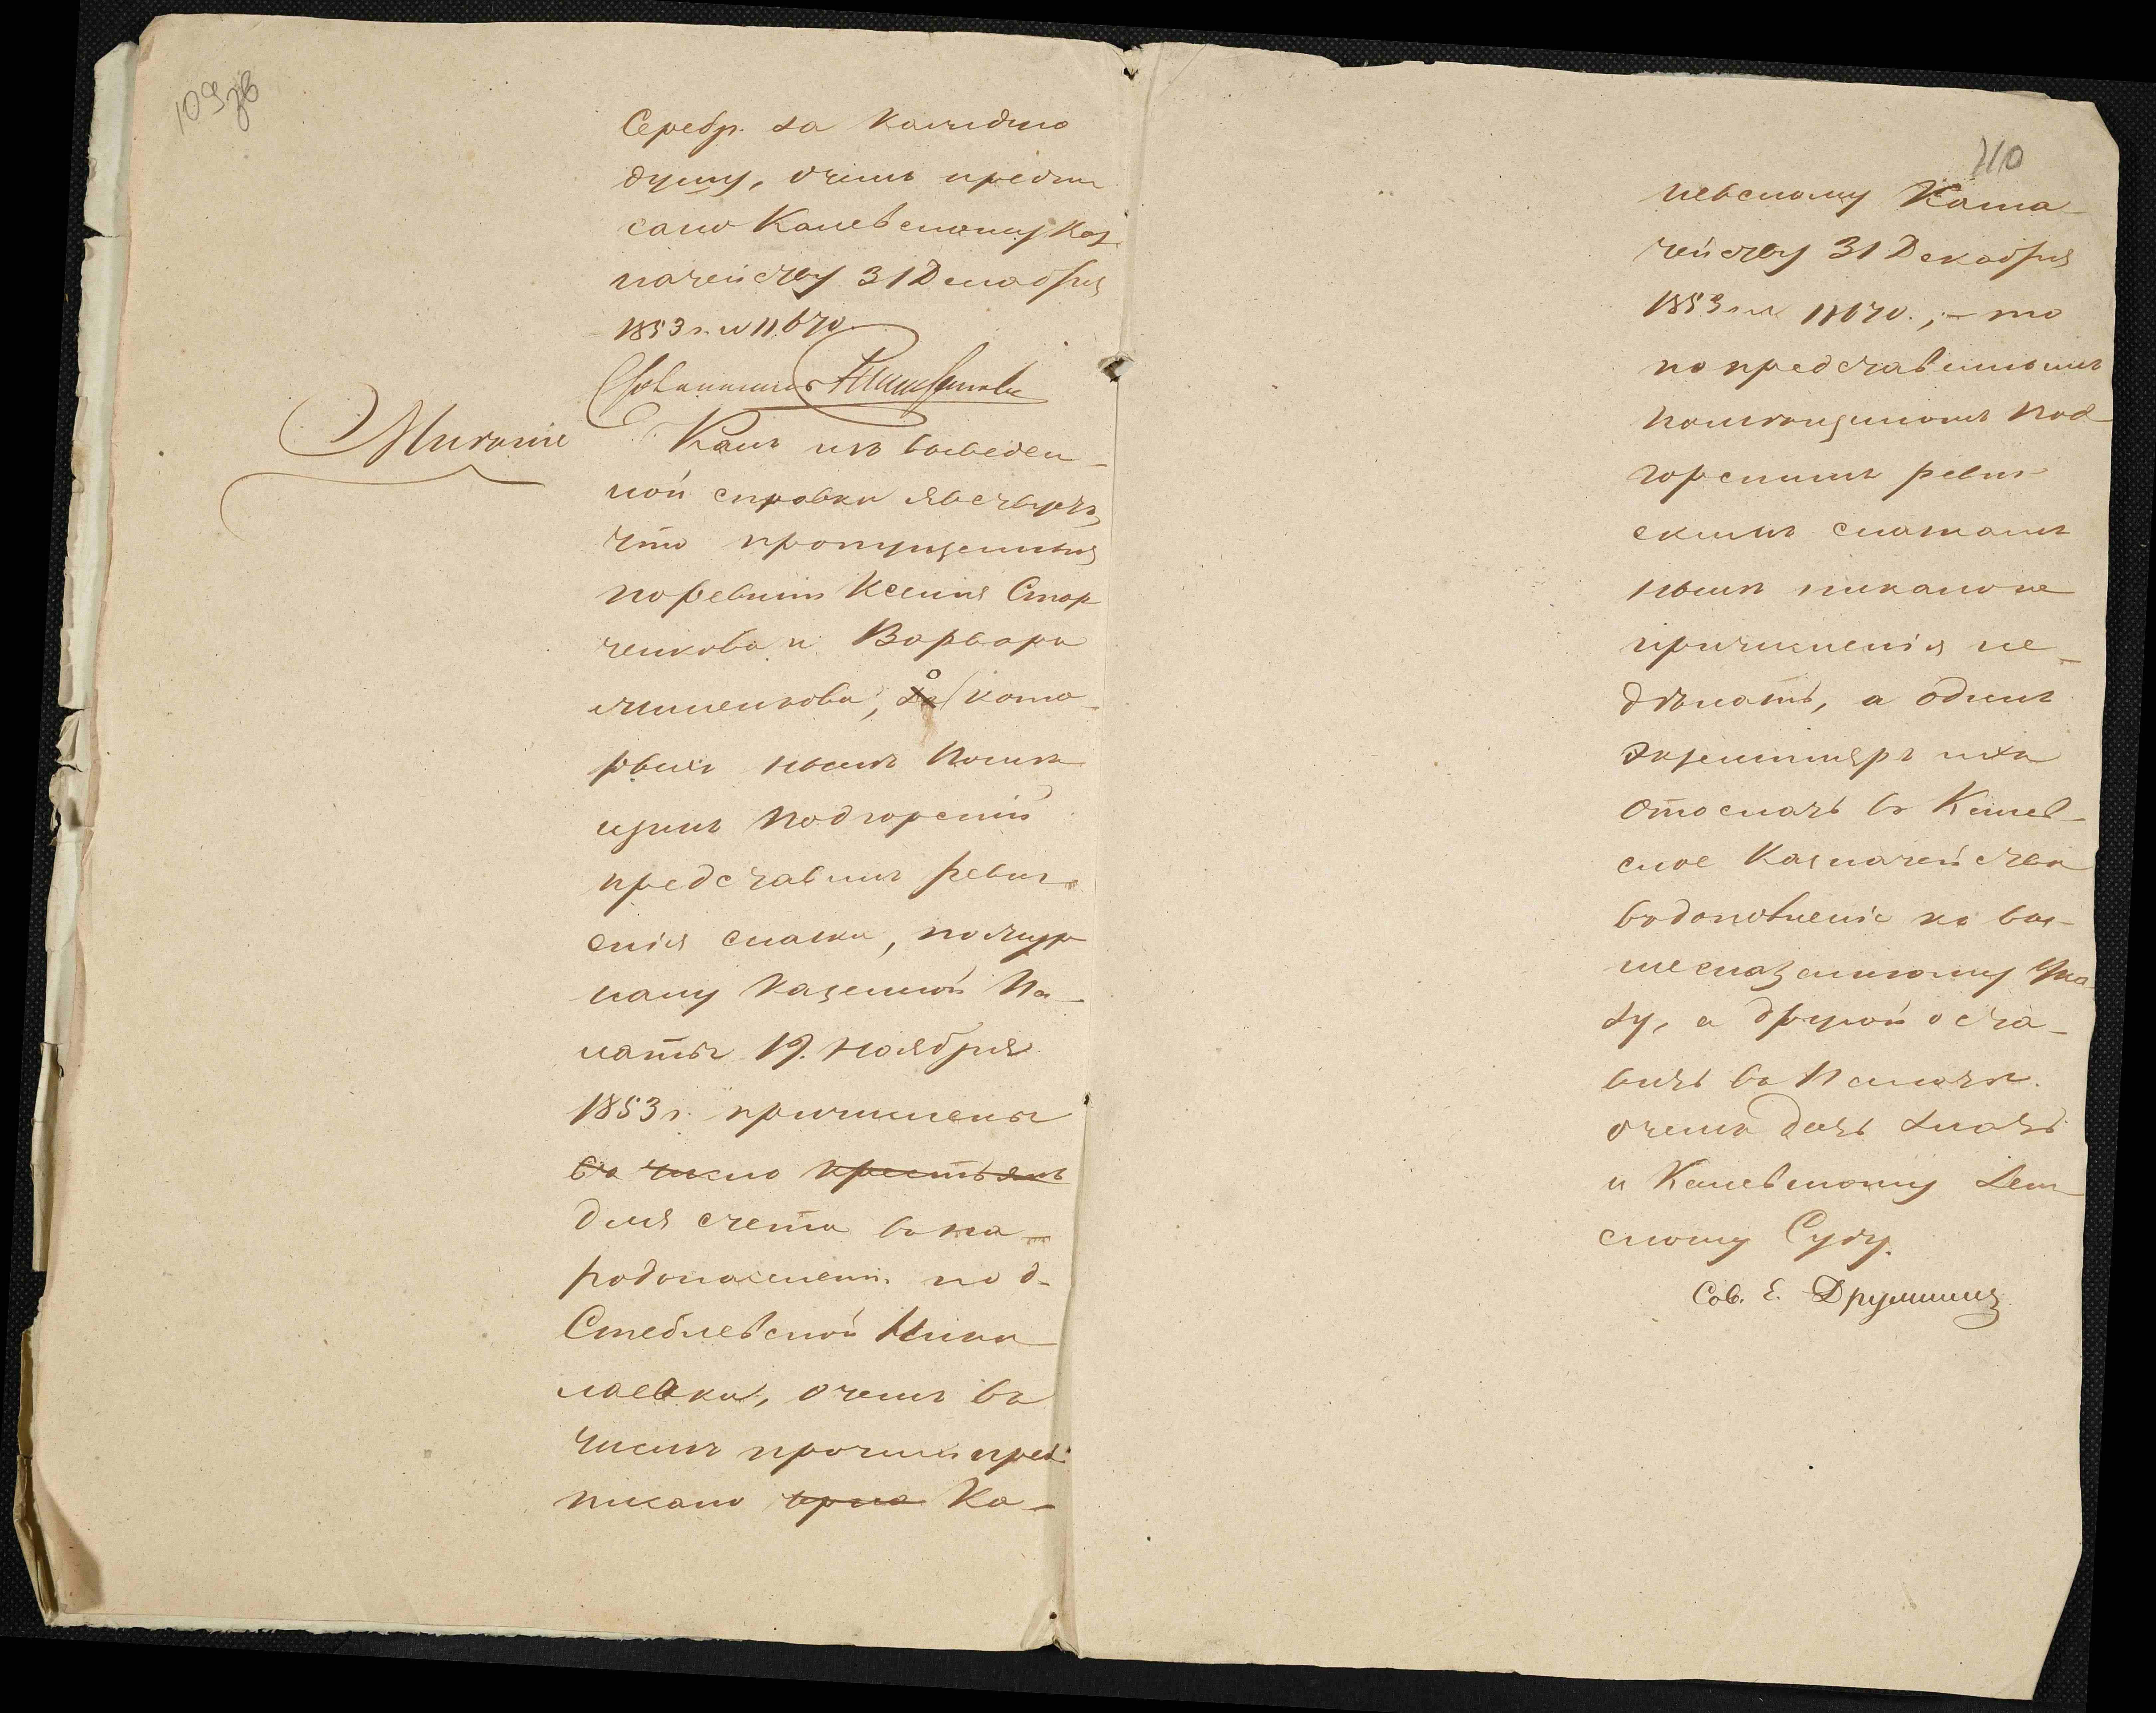 109зв
Серебр. за каждую
душу, о чемъ предпи
сано Каневскому Каз
начейству 31 Декабря
1853 г. № 11670.
Мнѣніе
Какъ изъ выведен-
ной справки явствуетъ,
что пропущенныя
по ревизіи Ксенія Стор
ченкова и Варвара
о кото-
рыхъ нынѣ помѣ
щикъ Подгорскій
представилъ ревиз
скія сказки, по жур
налу Казенной Па-
латы 19. Ноября
1853 г. причислены
въ число крестьянъ
для счета въ на-
родонаселеніи под-
Стеблевской Нико
лаевки, о чемъ въ
числѣ прочихъ пред
писано Ка-
110
невскому Казна-
чейству 31 Декабря
1853 г. № 11670., – то
по представленнымъ
помѣщикомъ Под
горскимъ ревиз
скимъ сказкамъ
нынѣ никакого
причисленія не-
дѣлать, а одинъ
экземпляръ ихъ
отослать въ Канев-
ское Казначейство
въ дополненіе къ вы-
шесказанному Ука
зу, а другой оста-
вить въ Палатѣ.
о чемъ дать знать
и Каневскому Зем
скому Суду.
Сов. Е.